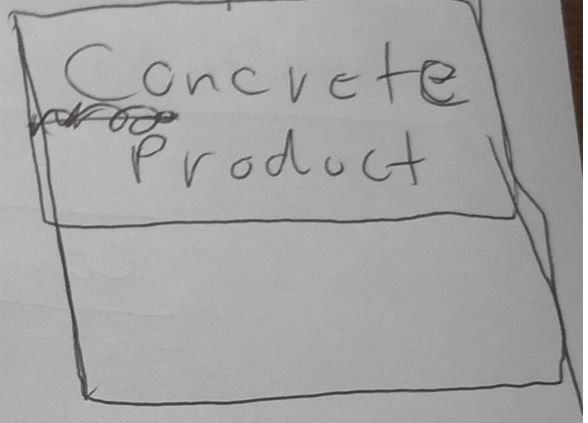 Concrete
Product